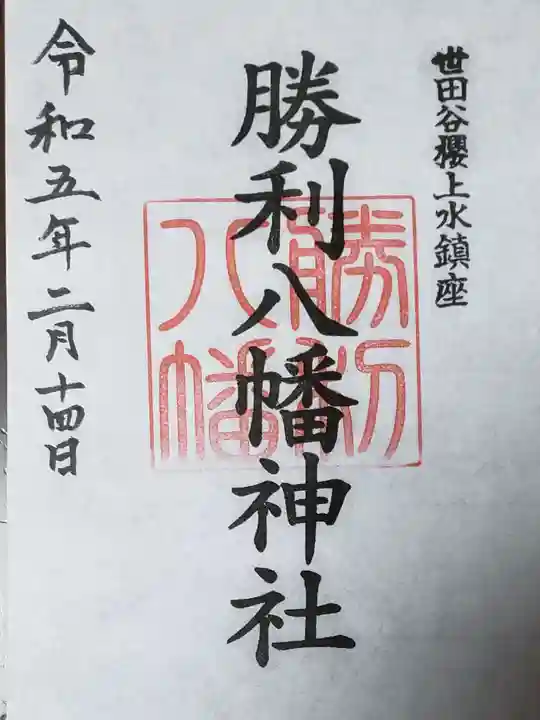 世田谷櫻上水鎮座
勝利八幡神社
勝利
八幡
令和五年二月十四日